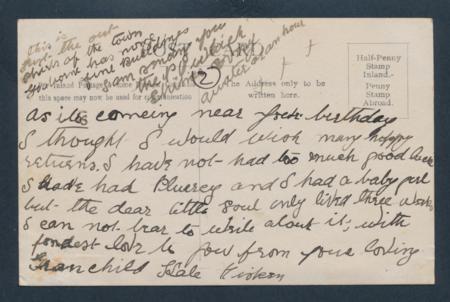 this is
just the out
skirts of the town
Gosborne has now
fine Buildings
I am sorry you
the
quater of an hour
2
Inland Postage
this space may now be used for communication
The Address only to be
written here.
Half-Penny
Stamp
Inland.-
Penny
Stamp
Abroad.
as its comeing near your birthday
I thought I would wish many happy
returns. I have not had too much good luck
I have had Pluresy and I had a baby girl
but the dear little soul only lived three weeks
I can not bear to write about it, with
fondest love to you from your loving
Granchild Kate